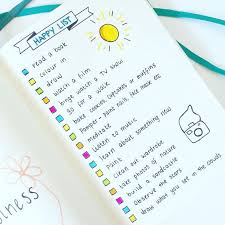 HAPPY LIST
read a book
colour in
draw
watch a film
binge watch a TV show
go for a walk
bake cookies, cupcakes or muffins
pamper - paint nails, face mask etc
meditate
listen to music
learn about something new
paint
clean out wardrobe
take photos of nature
build a
observe the stars
draw what you see in the clouds
lness